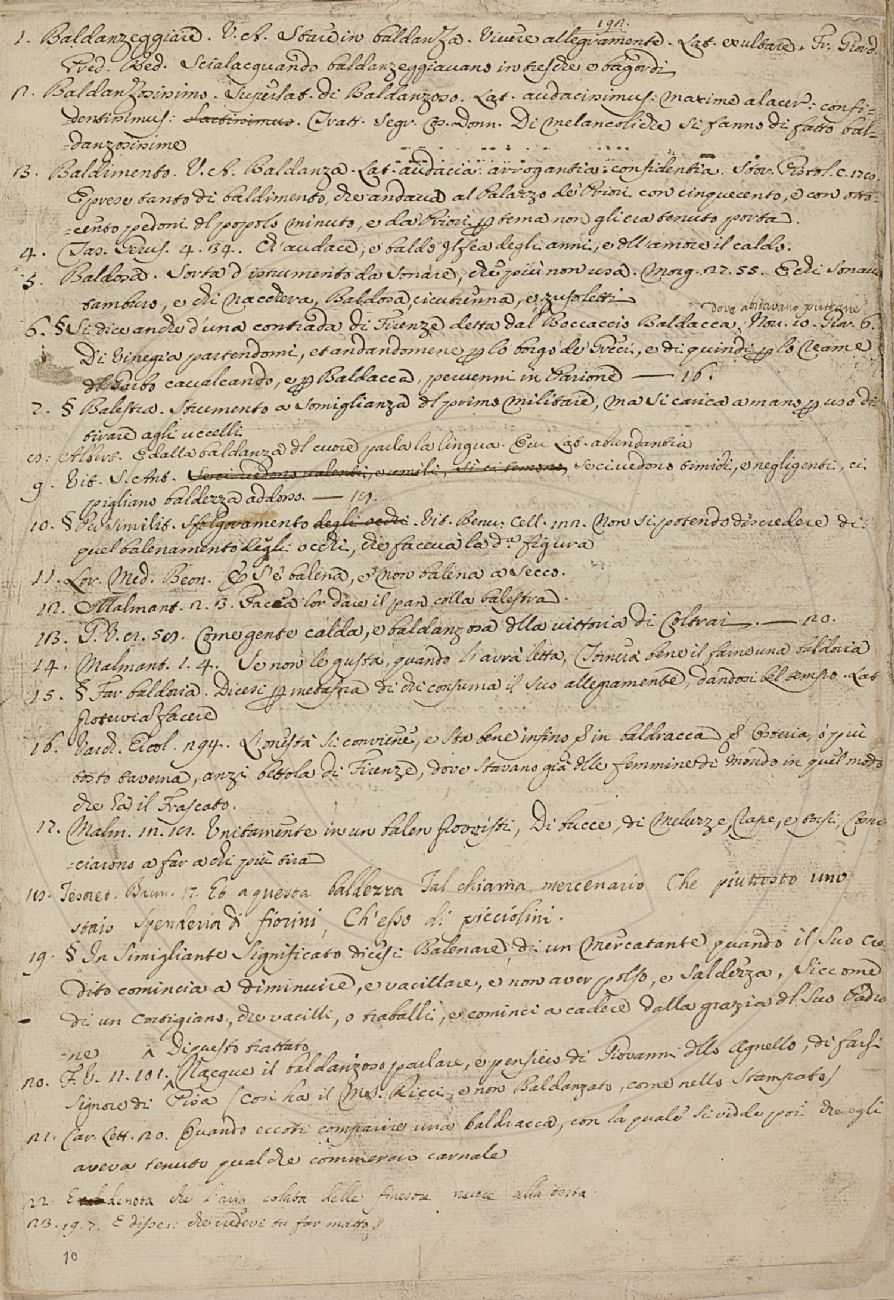 1. Baldanzeggiare. V. A. Stare in baldanza. Vivere allegramente. Lat. exultare. Fr. Giord.
Pred. Red. Scialacquando baldanzeggiavano in tresche e bagordi
2. Baldanzosissimo. Superlat. di Baldanzoso. Lat. audacissimus: maxime alacer: confi-
dentissimus: Tratt. Segr. cos. Donn. Di melancoliche si fanno di fatto bal-
=danzosissime
3. Baldimento. V. A. Baldanza. Lat. audacia: arrogantia: confidentia. Stor. Pistol.
E prese tanto di baldimento, che andava al Palazzo de' Priori con cinquecento, e con otto-
=cento pedoni del popolo minuto, e da' Priori per tema non gli era tenuto porta.
4. Tas. Gerus. 4. 34. Ed audace, e baldo il fea degli anni, e dell'amore il caldo.
5. Baldosa. Sorta d'istrumento da sonare, che più non usa. Morg. 27. 55. E chi sonava
tamburo, e chi nacchera, Baldosa, cicutrenna, e zufoletti
dove abitavano puttane
6. § Si dice anche d'una contrada di Firenze detta dal Boccaccio Baldacca. Nov. 10. Gior. 6.
Di Vinegia partendomi, et andandomene per lo borgo de' Greci, e di quindi per lo reame
del Garbo cavalcando, e per Baldacca, pervenni in Parione — 16.
7. § Balestra. Strumento a somiglianza del primo militare, ma si carica a mano per uso di
tirare agli uccelli
8. Albert. E dalla baldanza del cuore parla la lingua. Lat. abundantia
9. Vit. S. Ant. Se ci vedono timidi, e negligenti, ci
pigliano baldezza addosso. —
10. § Per similit. Sfolgoramento degli occhi. Vit. Benv. Cell. Non si potendo discredere di
quel balenamento degli occhi, che faceva la d.a figura
11. Lor. Med. Beon. E' s'è balena, e' non balena a secco.
12. Malmant. 2. 3. Faccia lor dare il pan colla balestra.
13. Come gente calda, e baldanzosa della vittoria di Coltrai — 20.
14. Malmant. 1. 4. Se non le gusta, quando l'avrà letta, Tornerà bene il farne una baldoria
15. § Far baldoria. Dicesi per metafora di chi consuma il suo allegramente, dandosi bel tempo. Lat.
facere
16. Varch. Ercol. 294. L'onestà si conviene, e sta bene infino in baldracca osteria, o più
tosto taverna, anzi bettola di Firenze, dove stavano già delle femmine di mondo in quel modo
che ha il Frascato.
17. Malm. Unitamente in un balen provvisti, Di bucce, di meluzze, rape, e torsi, Comin-
=ciarono a far a chi più tira
18. Tesoret. Brun. 17. Et a questa baldezza Tal chiama mercenaio Che piuttosto uno
staio Spenderia di fiorini, Ch'esso di picciolini.
19. § In Simigliante significato dicesi Balenare, di un Mercatante quando il suo cre-
dito comincia a diminuire, e vacillare, e non aver polso, e saldezza, siccome
di un cortigiano, che vacilli, o traballi, e cominci a cadere dalla grazia del suo Padro-
=ne
Di questo trattato
20. F. V. 11. 101. Nacque il baldanzoso parlare, e pensiero di Giovanni dello Agnello, di farsi
Signore di Pisa (così ha il Ms. Ricci, e non Baldanzato, come nello stampato)
21. Car. Lett. 20. Quando eccoti comparire una baldracca, con la quale si vidde poi che egli
aveva tenuto qualche commercio carnale
22. E denota che l'aria colata delle finestre nuoce alla testa
23. 19. 7. E disse: che credevi tu far matto?
10